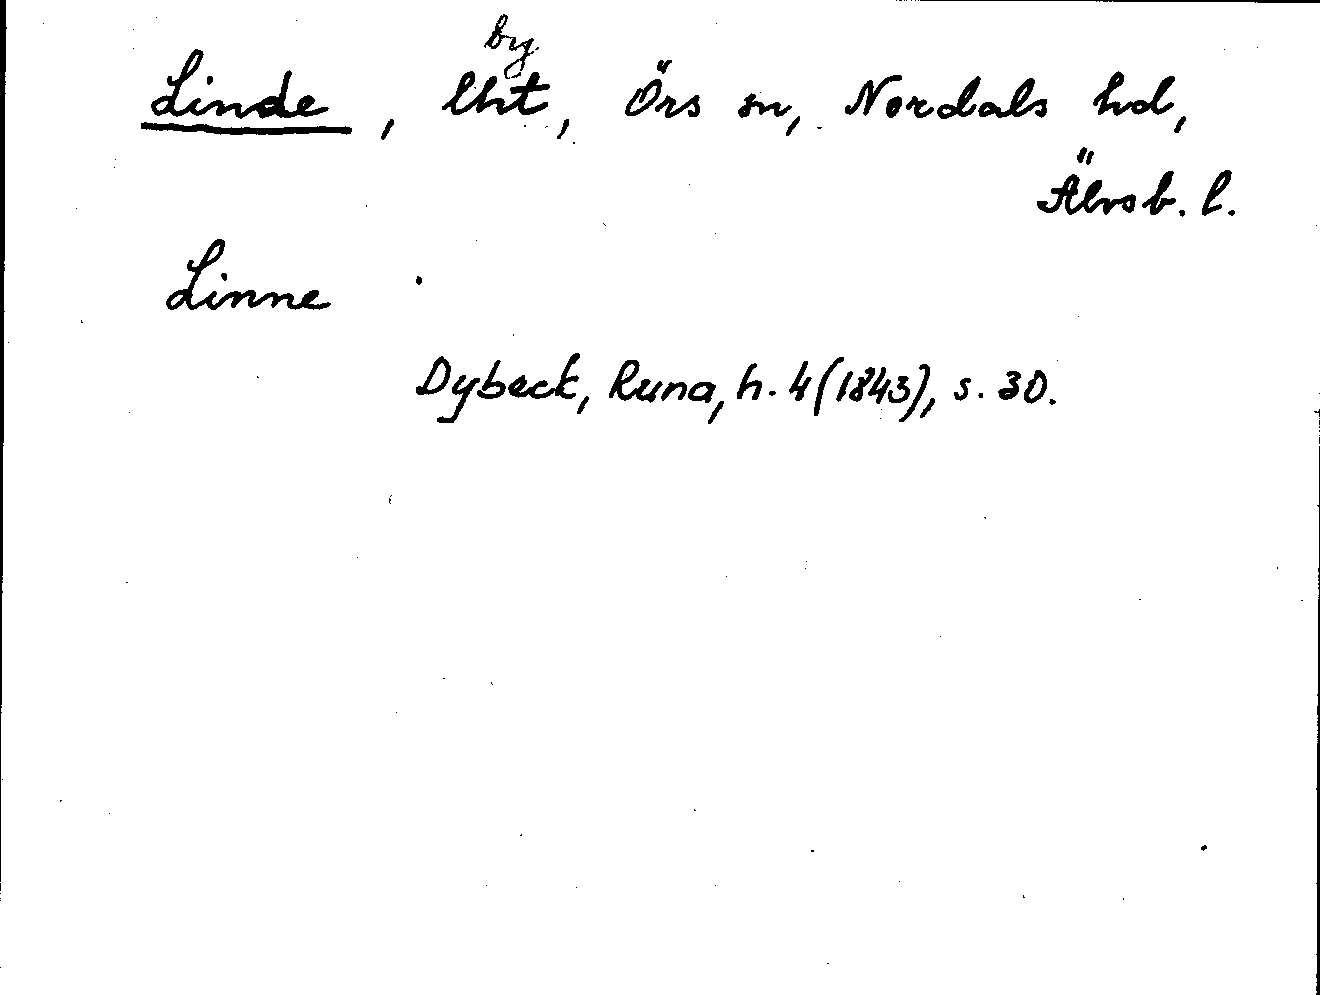 by
Linde, lht, Örs sn, Nordals hd,
Älvsb. l.
Linne
Dybeck, Runa, h. 4 (1843), s. 30.